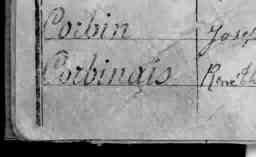 Corbin Josep
Corbinais René